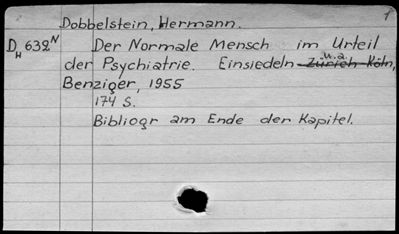 1
Dobbelstein, Hermann.
D H 632 N Der Normale Mensch im Urteil
der Psychiatrie. Einsiedeln u.a. Zürich Köln,
Benziger, 1955
174 S.
Bibliogr am Ende der Kapitel.